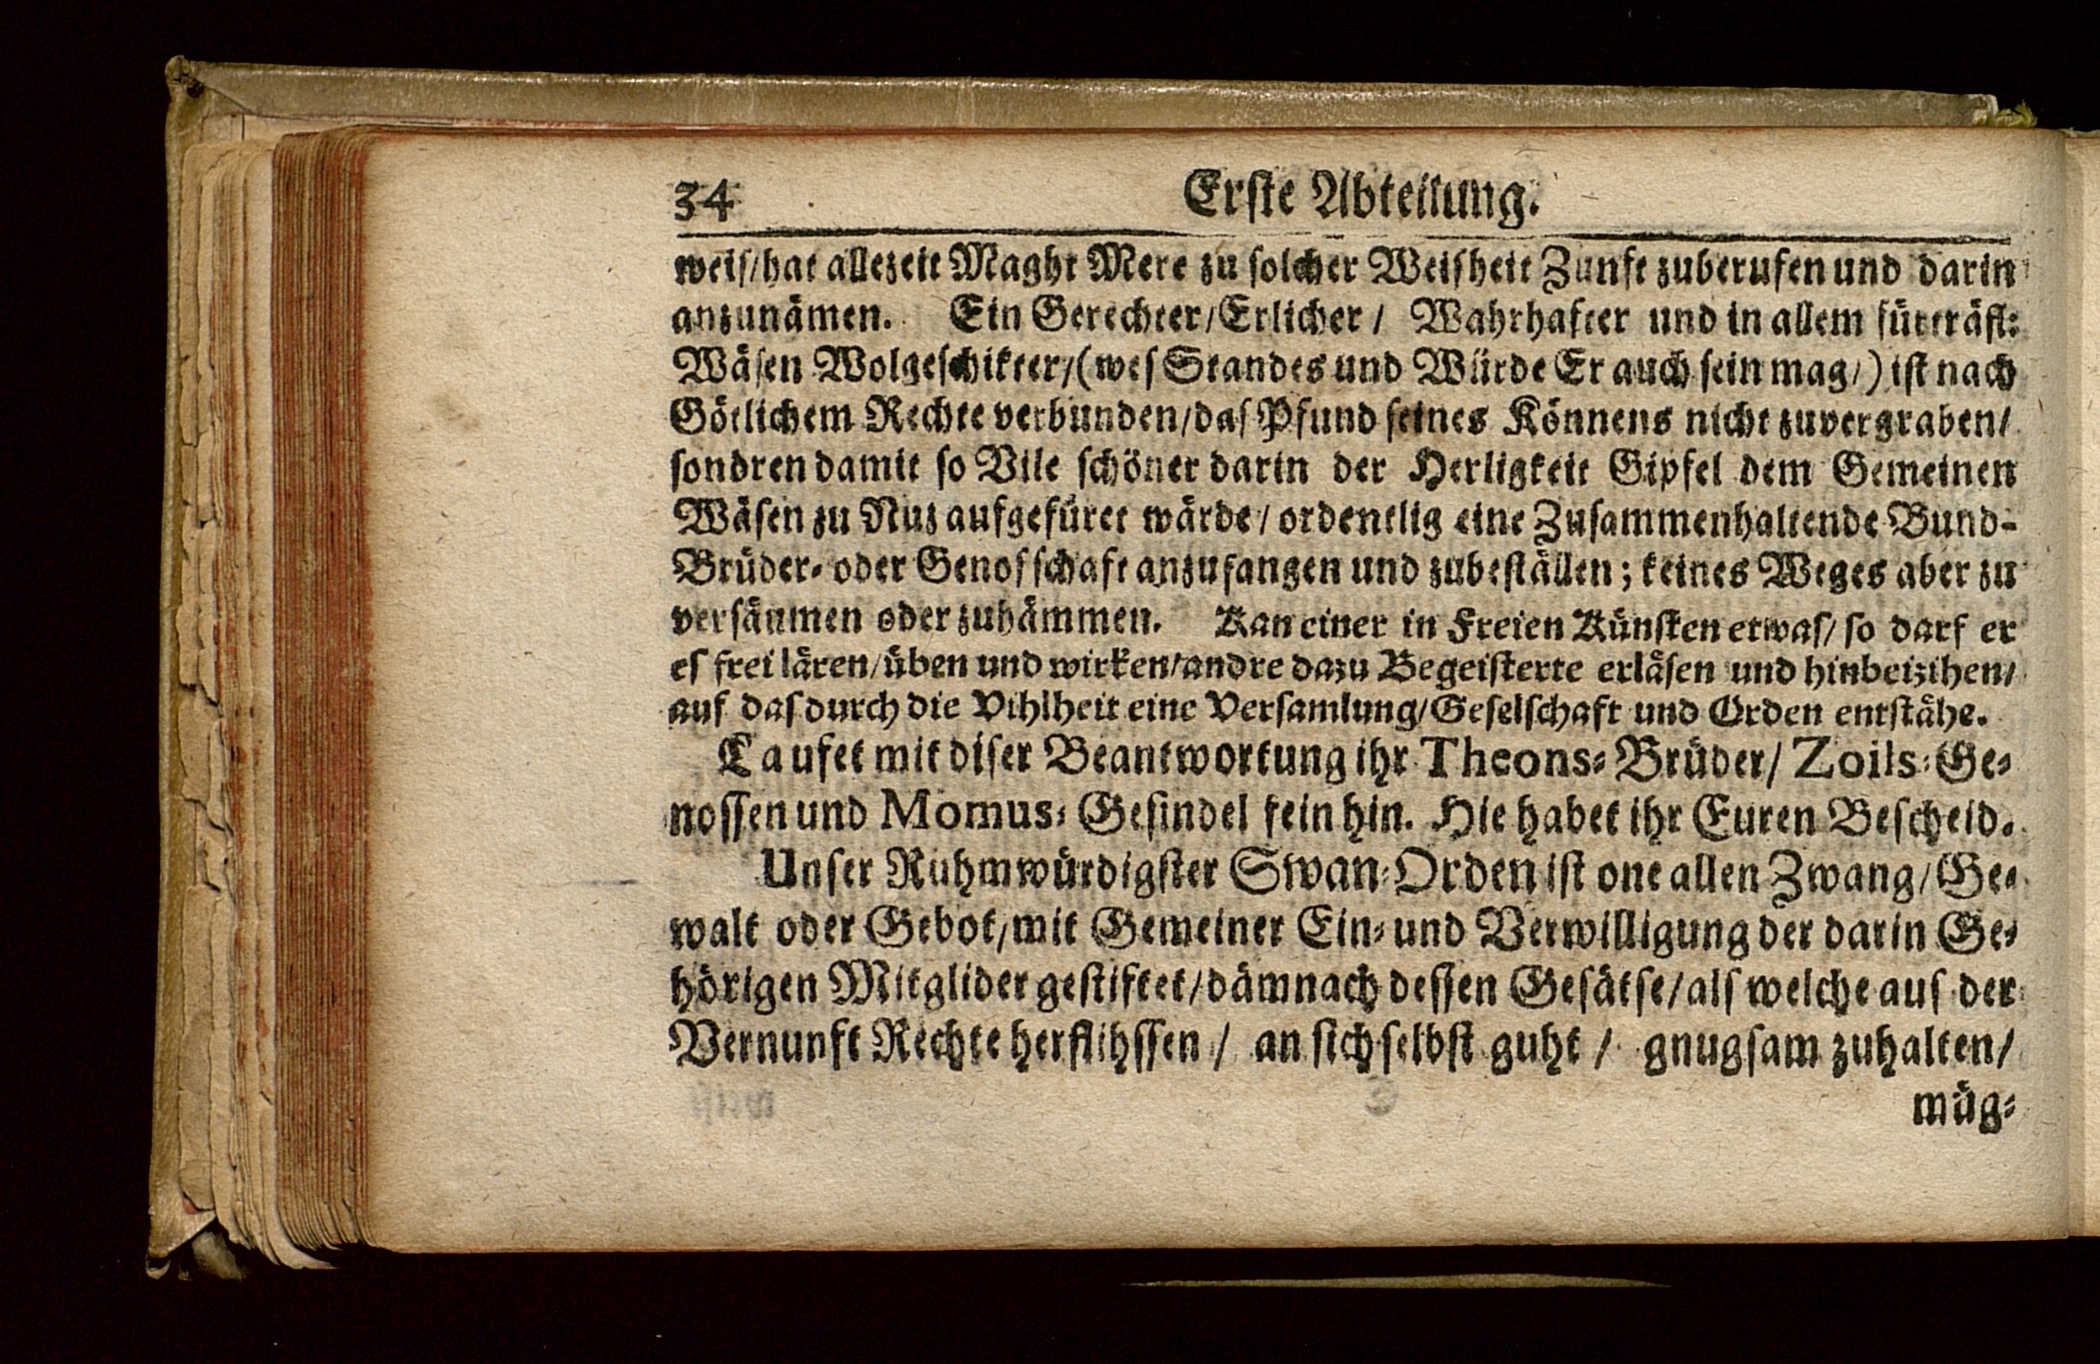 34 Erste Abteilung.
weis/hat allezeit Maght Mere zu solcher Weisheit Zunft zuberufen und darin
anzunämen. Ein Gerechter/Erlicher/ Wahrhafter und in allem fürträfl:
Wäsen Wolgeschikter/(wes Standes und Würde Er auch sein mag/) ist nach
Götlichem Rechte verbunden/das Pfund seines Könnens nicht zuvergraben/
sondren damit so Vile schöner darin der Herligkeit Gipfel dem Gemeinen
Wäsen zu Nuz aufgefüret wärde/ordentlig eine Zusammenhaltende Bund-
Brüder- oder Genosschaft anzufangen und zubeställen; keines Weges aber zu
versäumen oder zuhämmen. Kan einer in Freien Künsten etwas/ so darf er
es frei lären/üben und wirken/andre dazu Begeisterte erläsen und hinbeizihen/
auf das durch die Vihlheit eine Versamlung/Geselschaft und Orden entstähe.
Laufet mit diser Beantwortung ihr Theons-Brüder/ Zoils-Ge-
nossen und Momus-Gesindel fein hin. Hie habet ihr Euren Bescheid.
Unser Ruhmwürdigster Swan-Orden ist one allen Zwang/Ge-
walt oder Gebot/mit Gemeiner Ein- und Verwilligung der darin Ge-
hörigen Mitglider gestiftet/dämnach dessen Gesätse/als welche aus der
Vernunft Rechte herflihssen/ an sich selbst guht/ gnugsam zuhalten/
müg-